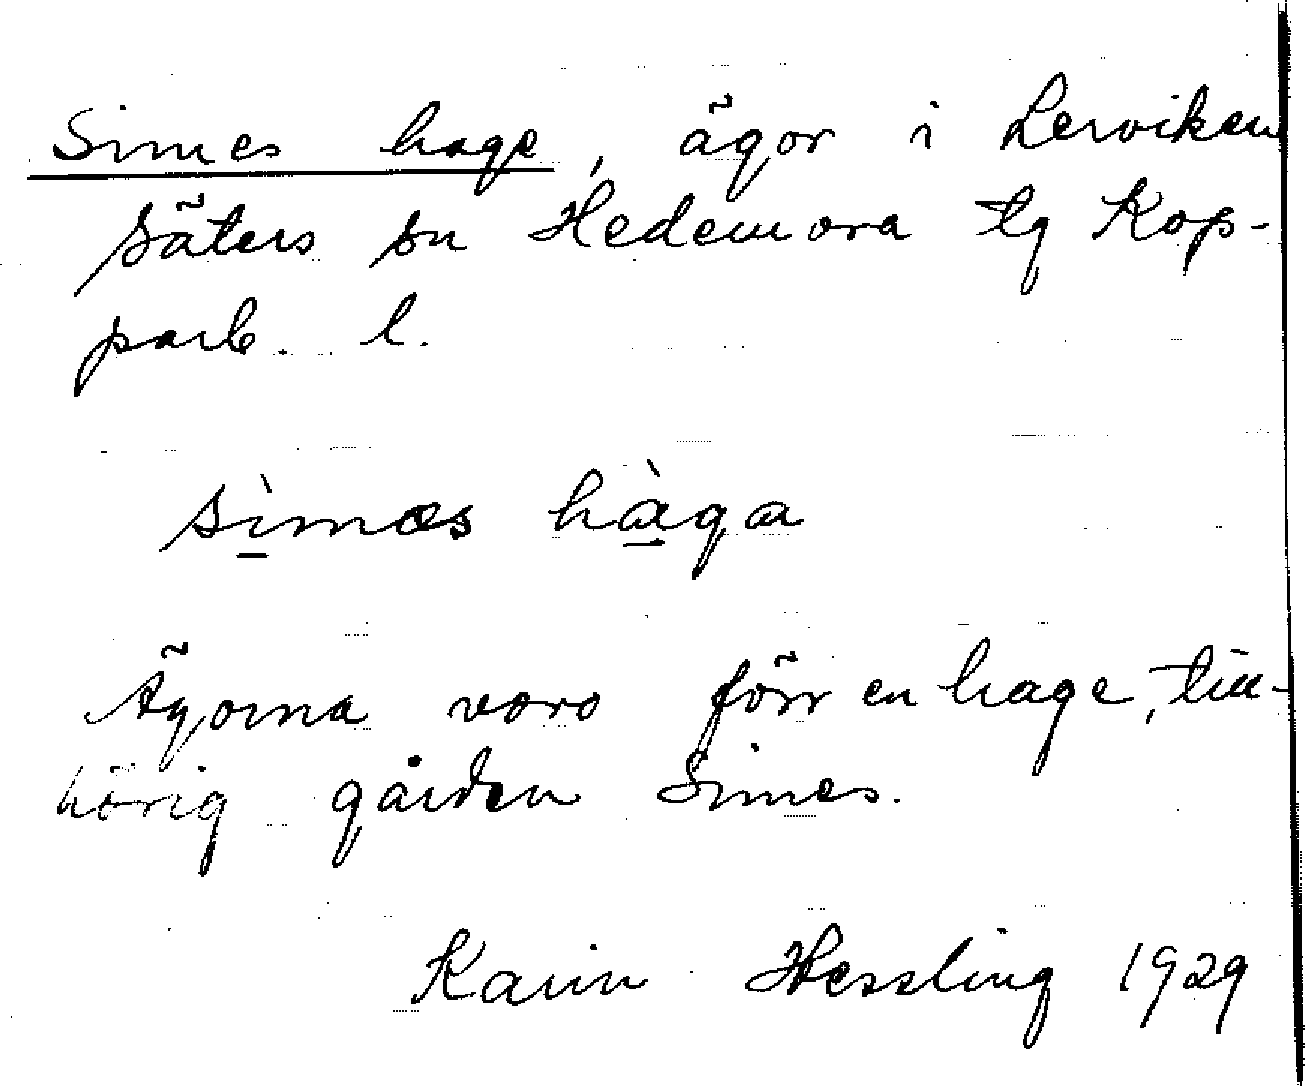 Simes hage, ägor i Lerviken
Säters sn Hedemora tg Kop-
parb. l.
sìmas hàga
Ägorna voro förr en hage, till-
hörig gården Simes.
Karin Hessling 1929